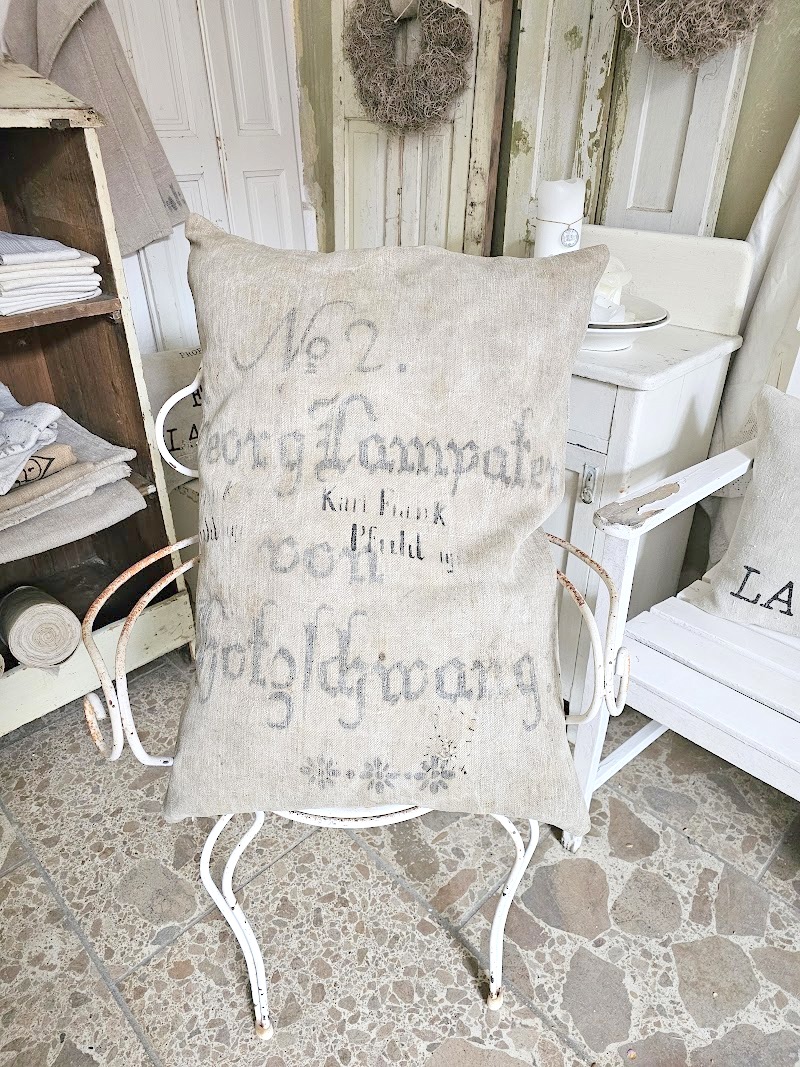 No 2.
eorg Lampater
Karl Frank
Pfuhl
von
Holzschwang
LA